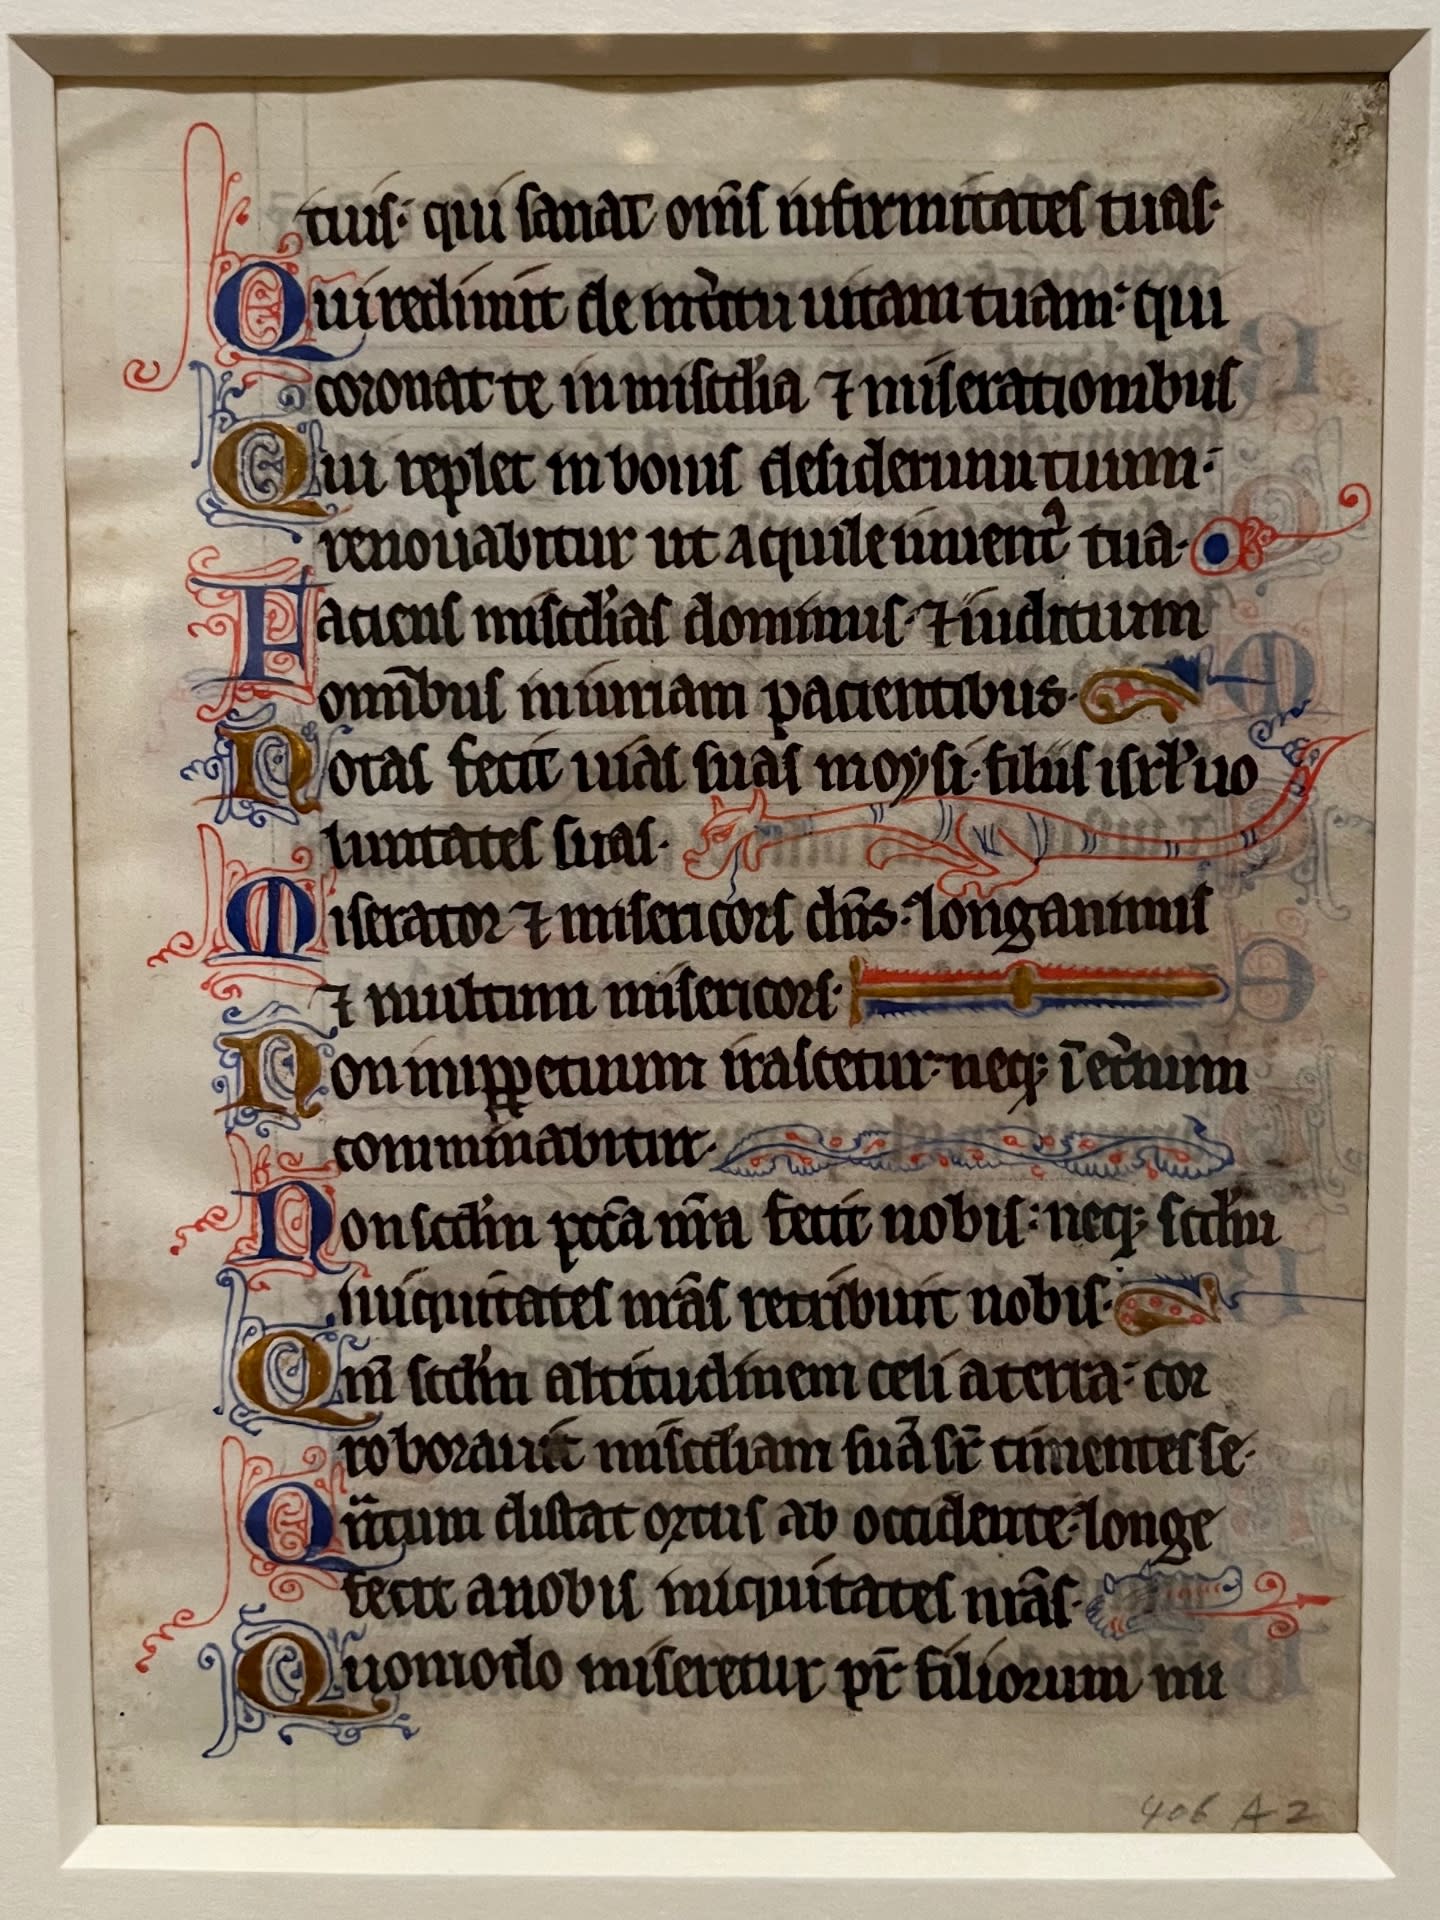 tuis· qui sanat om̄s infirmitates tuas·
Qui redimit de int̾itu uitam tuam: qui
coronat te in mis̾cdia ⁊ miserationibus
Qui replet in bonis desiderium tuum:
renouabitur ut aquile iuuent᷒ tua·
Faciens mis̾cdias dominus· ⁊ iudicium
omīb̾us iniuriam pacientibus·
Notas fecit uias suas moysi· filiis isrl̾ uo
luntates suas·
Miserator ⁊ misericors dn̄s: longanimis
⁊ multum misericors·
Non inp̱petuum irascetur: neq; ī et̾num
comminabitur·
Non scd̾m pcc̄a nr̄a fecit nobis: neq; scd̾m
iniquitates nr̄as retribuit nobis·
Qm̄ scd̾m altitudinem celi a terra: cor
roborauit mis̾cdiam suā sr̄ timentes se·
Qn̄tum distat ortus ab occidente: longe
fecit a nobis iniquitates nr̄as·
Quomodo miseretur pr̄ filiorum mi
406 A2